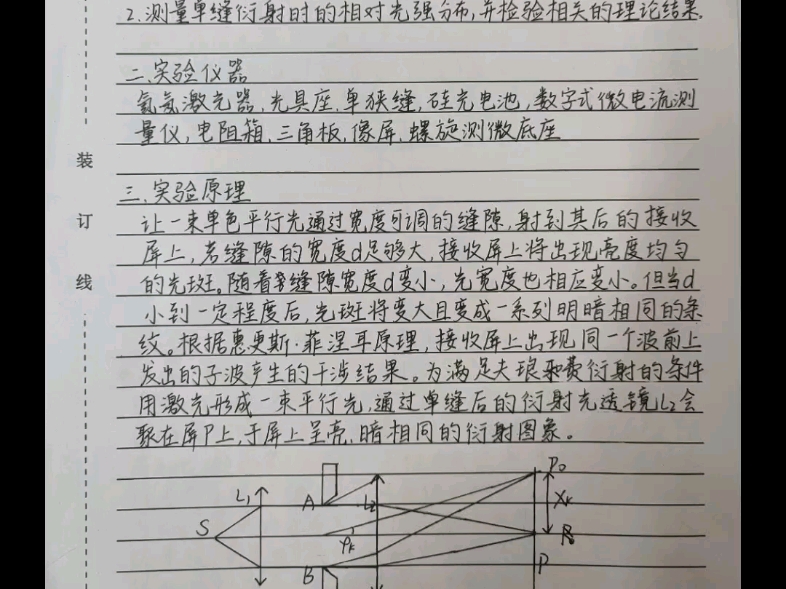 2.测量单缝衍射时的相对光强分布,并检验相关的理论结果.
二、实验仪器
氦氖激光器、光具座、单狭缝,硅光电池,数字式微电流测
量仪,电阻箱、三角板,像屏、螺旋测微底座
三、实验原理
让一束单色平行光通过宽度可调的缝隙,射到其后的接收
屏上,若缝隙的宽度d足够大,接收屏上将出现亮度均匀
的光斑。随着缝隙宽度d变小,光宽度也相应变小。但当d
小到一定程度后,光斑将变大且变成一系列明暗相同的条
纹。根据惠更斯·菲涅耳原理,接收屏上出现同一个波前上
发出的子波产生的干涉结果。为满足夫琅和费衍射的条件
用激光形成一束平行光,通过单缝后的衍射光透镜L2会
聚在屏P上,于屏上呈亮,暗相同的衍射图象。
装
订
线
L1
S
A
B
L2
φk
P0
Xk
P